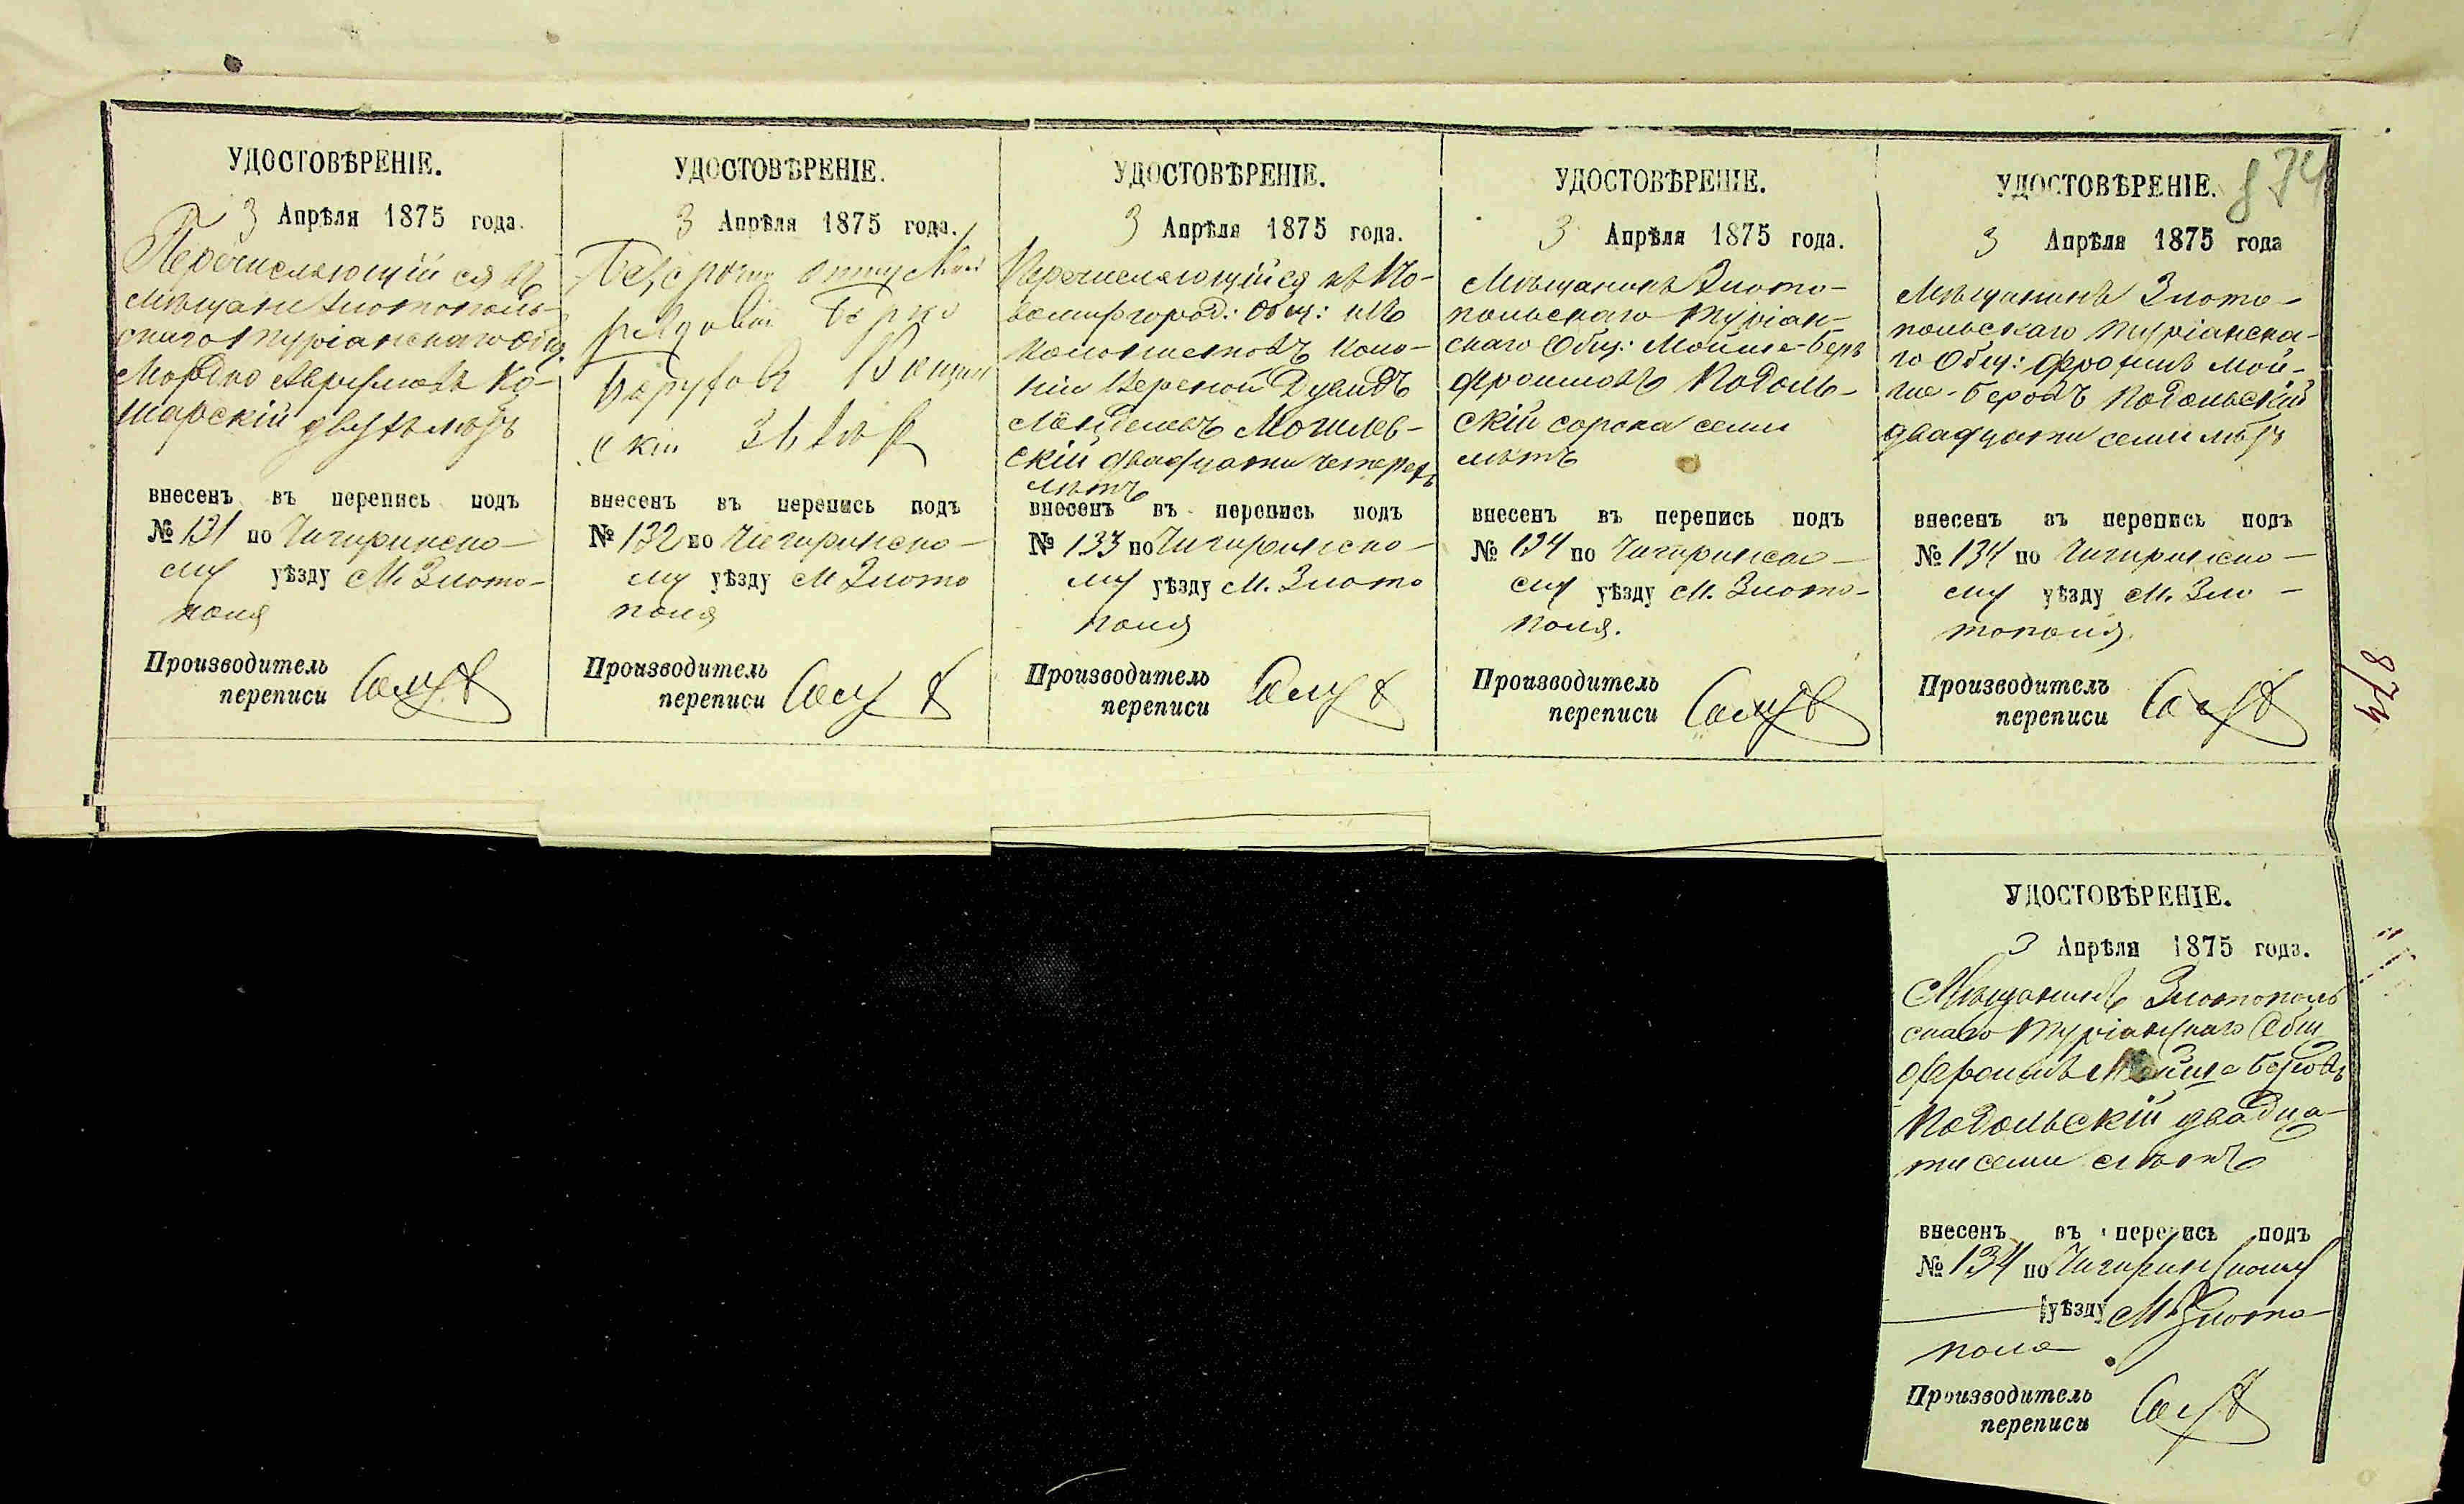 874
УДОСТОВѢРЕНІЕ.
3 Апрѣля 1875 года.
Перечисляющійся въ
мѣщане Златополь-
скаго Туріанскаго Общ.
Мордко Аврумовъ Ко-
шарскій двухъ лѣтъ
внесенъ въ перепись подъ
№ 131 по Чигиринско-
му уѣзду М. Злато-
поля
Производитель
переписи
УДОСТОВѢРЕНІЕ.
3 Апрѣля 1875 года.
рядовой Берко
Баруховъ
скій 31
внесенъ въ перепись подъ
№ 132 по Чигиринско-
му уѣзду М Злато
поля
Производитель
переписи
УДОСТОВѢРЕНІЕ.
3 Апрѣля 1875 года.
Перечисляющійся въ Но-
вомиргород: Общ: изъ
колонистовъ коло-
ніи Дувидъ
Менделевъ Могилев-
скій двадцати четырехъ
лѣтъ
внесенъ въ перепись подъ
№ 133 по Чигиринско-
му уѣзду М. Злато
поля
Производитель
переписи
УДОСТОВѢРЕНІЕ.
3 Апрѣля 1875 года.
Мѣщанинъ Злато-
польскаго Туріан-
скаго Общ: Мойше-Беръ
Фроимовъ Подоль-
скій сорока семи
лѣтъ
внесенъ въ перепись подъ
№ 134 по Чигиринско-
му уѣзду М. Злато-
поля.
Производитель
переписи
УДОСТОВѢРЕНІЕ.
3 Апрѣля 1875 года
Мѣщанинъ Злато-
польскаго Туріанска-
го Общ: Фроимъ Мой-
ше-Беровъ Подольскій
двадцати семи лѣтъ
внесенъ въ перепись подъ
№ 134 по Чигиринско-
му уѣзду М. Зла-
тополя.
Производитель
переписи
874
УДОСТОВѢРЕНІЕ.
3 Апрѣля 1875 года.
Мѣщанинъ Златополь
скаго Туріанскаго Общ
Фроимъ Мойше Беровъ
Подольскій двадца-
ти семи лѣтъ
внесенъ въ перепись подъ
№ 134 по Чигиринскому
уѣзду М. Злато-
поля
Производитель
переписи